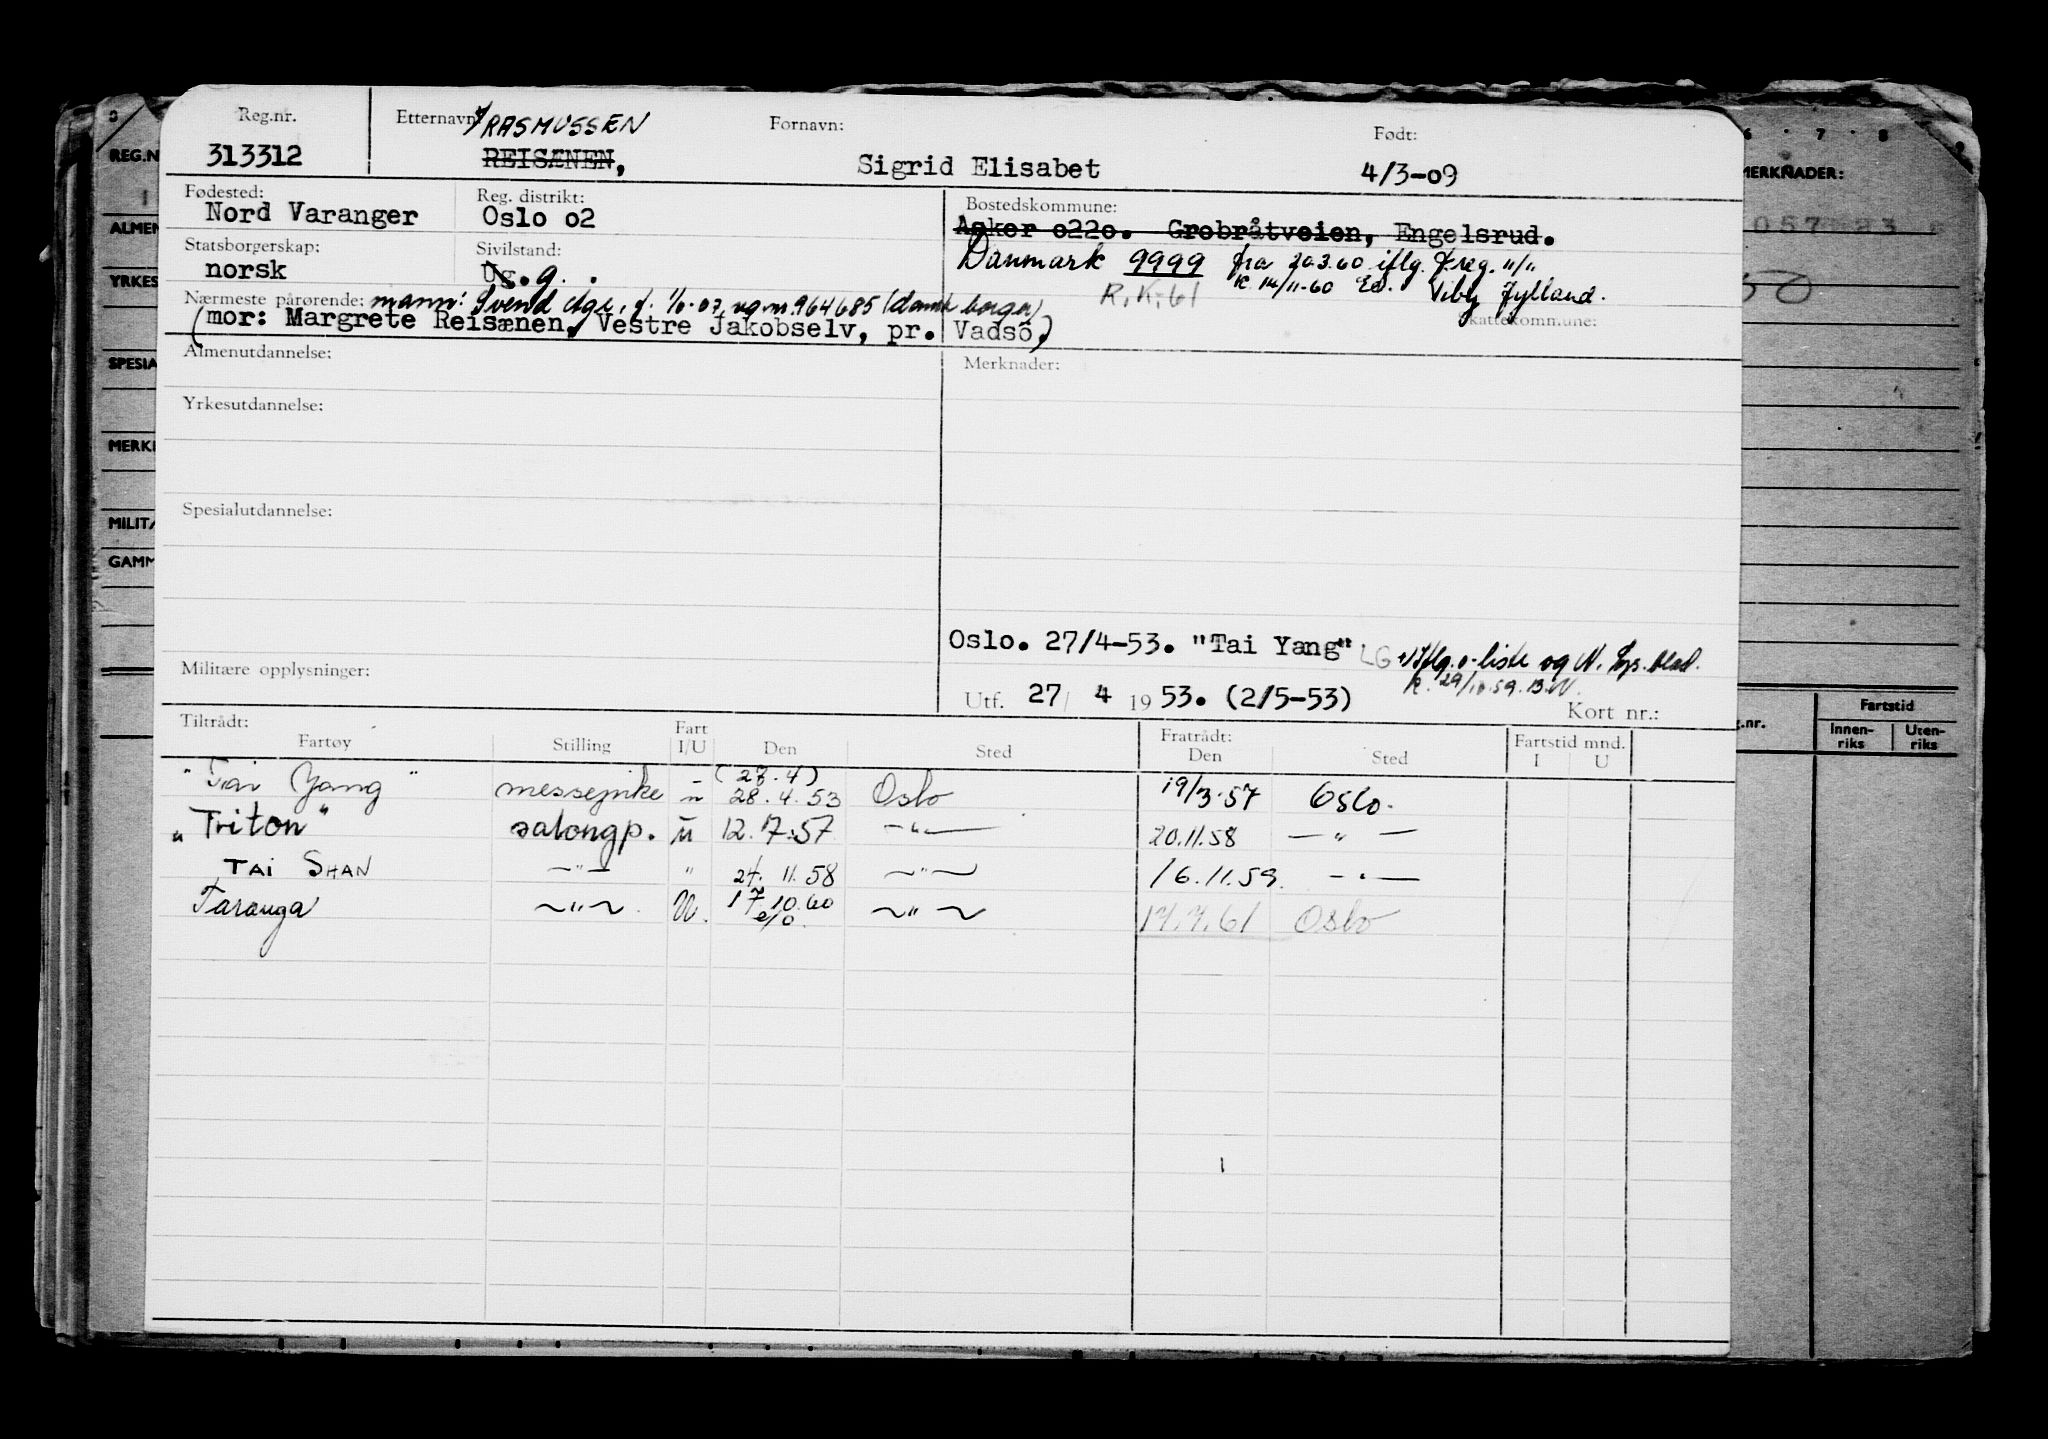 Reg.nr. Etternavn: RASMUSSEN Fornavn: Født:
313312 REISÆNEN, Sigrid Elisabet 4/3-09
Fødested: Reg. distrikt: Bostedskommune:
Nord Varanger Oslo o2 Asker o22o. Grobråtveien, Engelsrud.
Statsborgerskap: Sivilstand: Danmark 9999 fra 20.3.60 iflg. f.reg.
norsk Ug.g. K. 14/11-60 Viby Jylland.
R.K.61
Nærmeste pårørende: mann: Svend Åge, f. 07, 964685 (dansk borger)
(mor: Margrete Reisænen, Vestre Jakobselv, pr. Vadsö) Skattekommune:
Almenutdannelse: Merknader:
Yrkesutdannelse:
Spesialutdannelse:
Oslo. 27/4-53. "Tai Yang" LG Iflg. o-liste og N.
Militære opplysninger: 29/10.59.
Utf. 27/ 4 1953. (2/5-53) Kort nr.:
Tiltrådt: Fart Fratrådt: Fartstid mnd.
Fartøy Stilling I/U Den Sted Den Sted I U
(27.4)
"Tai Yang" messepike u 28.4.53 Oslo 19/3-57 Oslo.
"Triton" salongp. u 12.7.57 —"— 20.11.58 —"—
TAI SHAN —"— " 24.11.58 —"— 16.11.59. —"—
Taranga —"— U. 17.10.60 —"— 17.7.61 Oslo
e/o.
REG.N
ALMEN
YRKES
SPESIA
MERKN
MILITÆ
GAMM
6 7 8
MERKNADER:
Fartstid
Innen-riks
Uten-riks